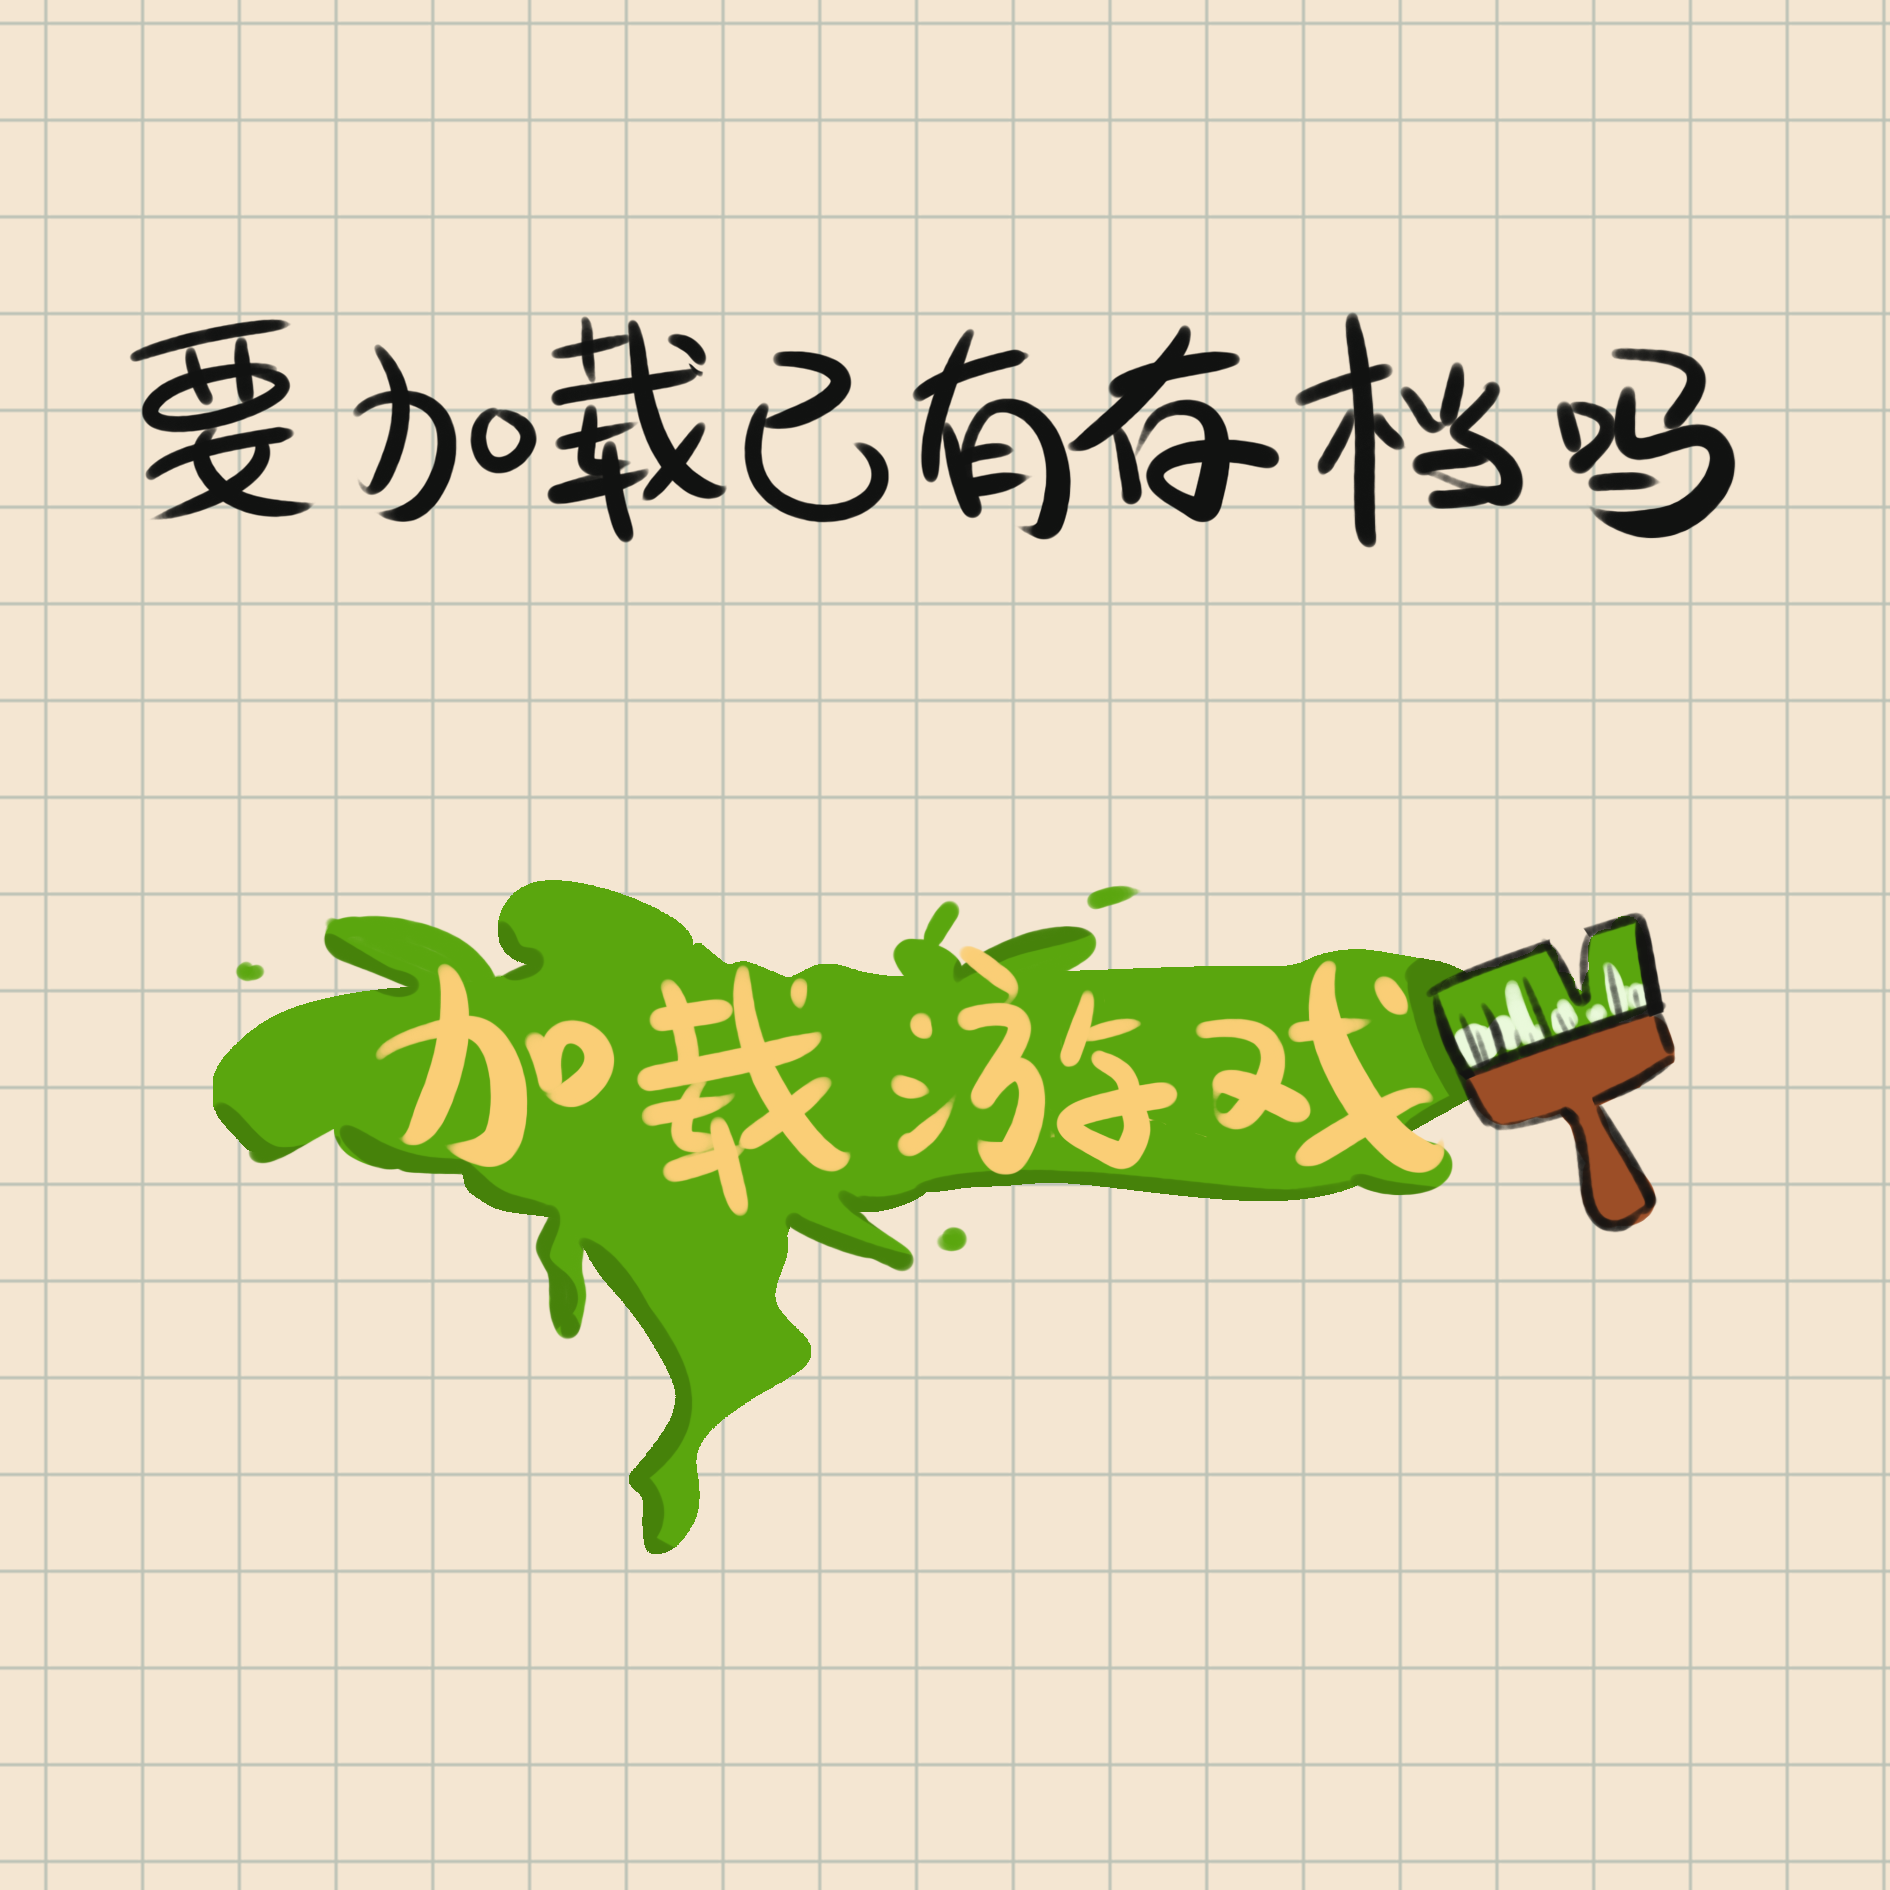 要加载已有存档吗
加载游戏